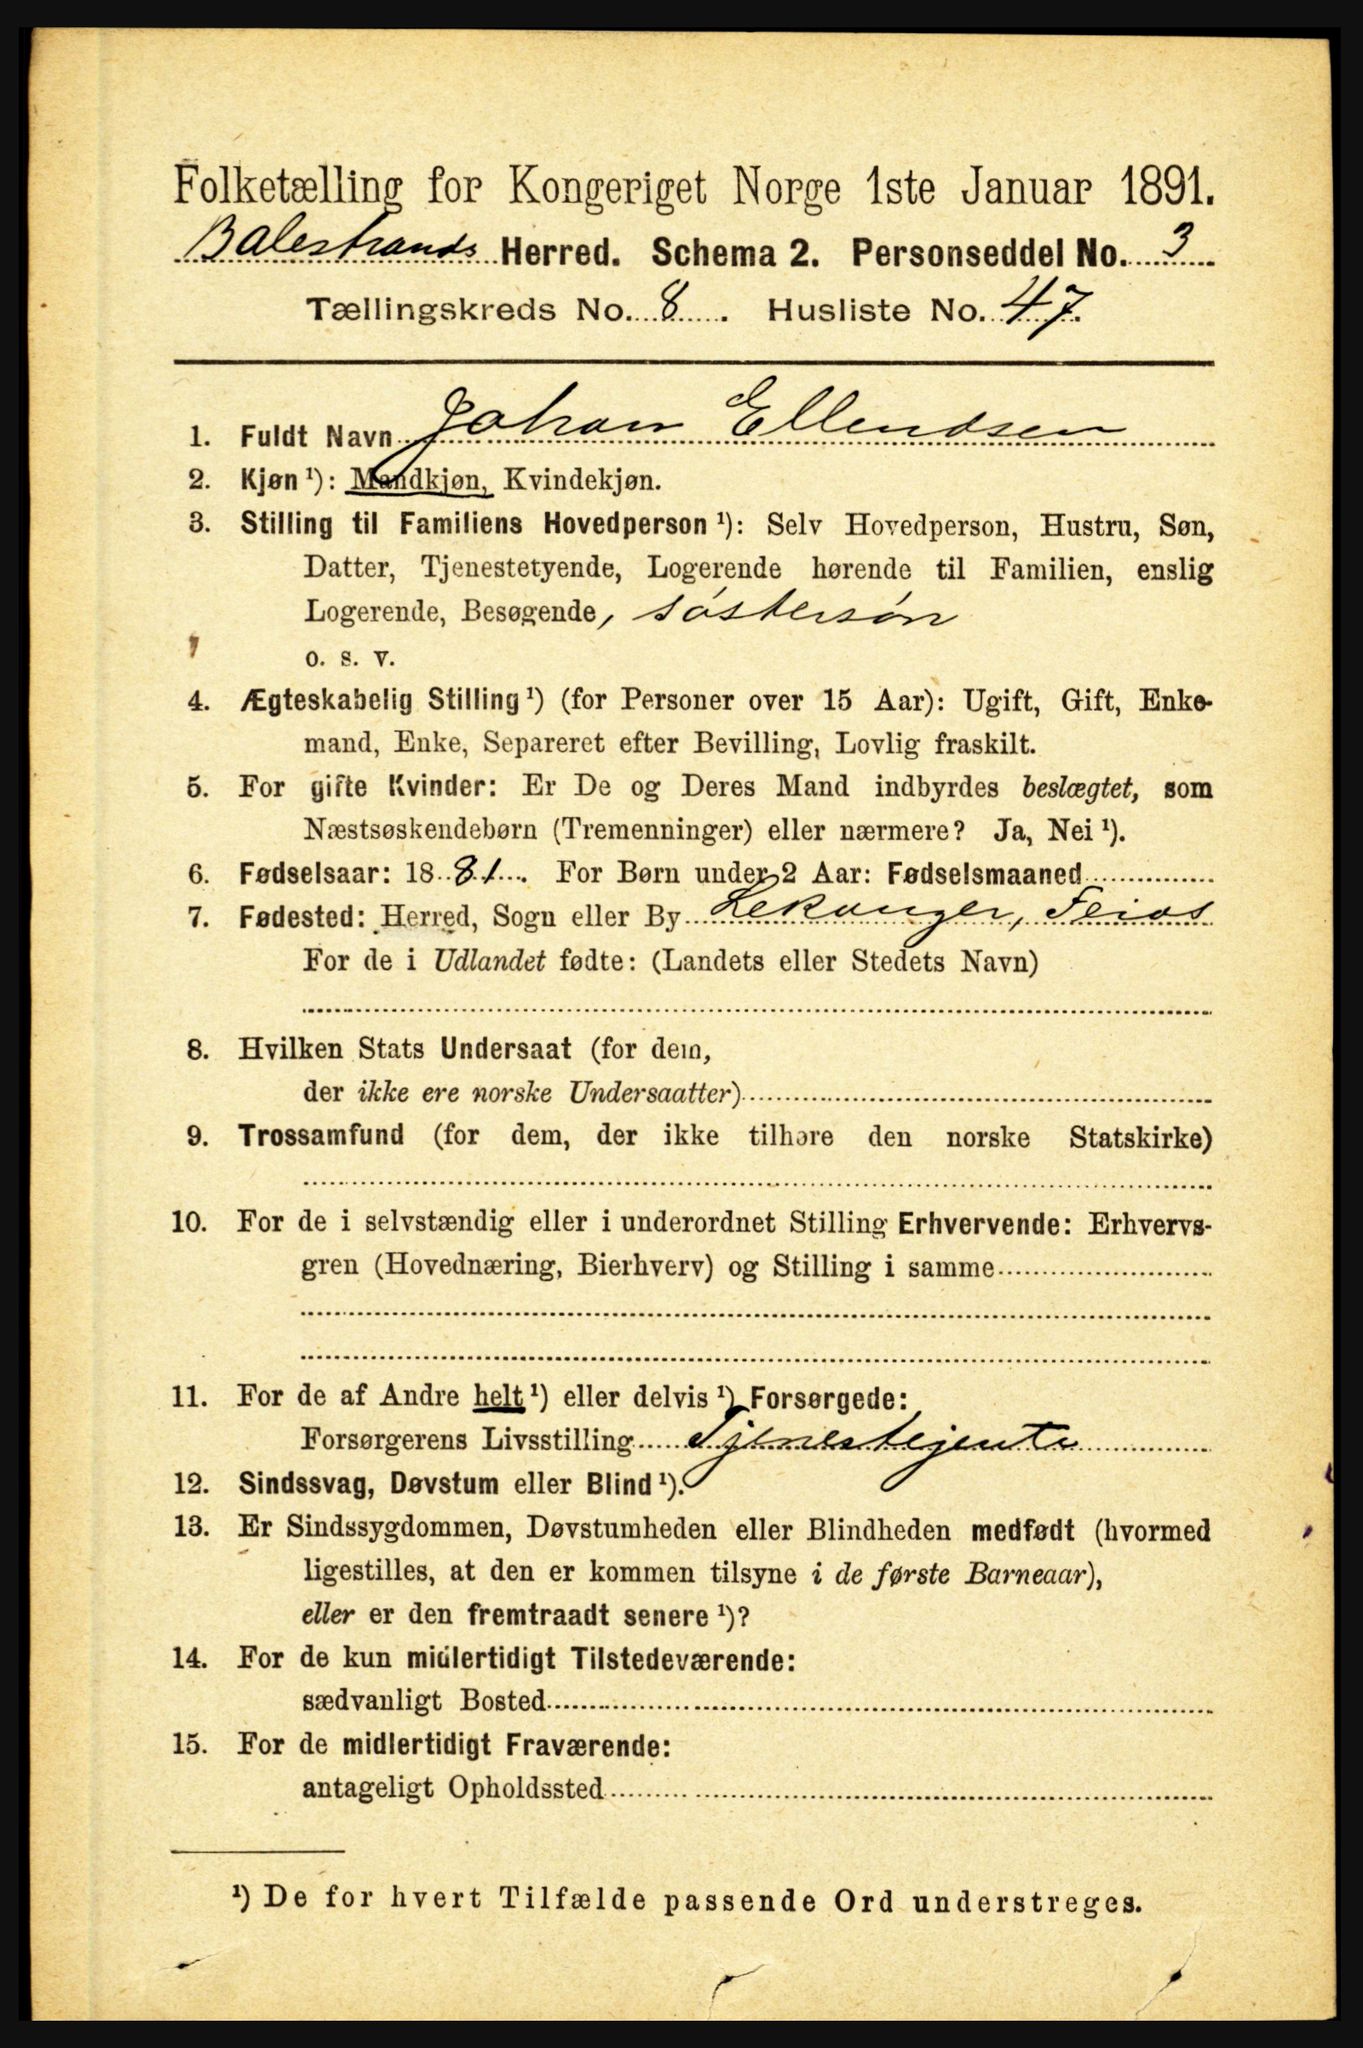 Folketælling for Kongeriget Norge 1ste Januar 1891.
Balestrands Herred. Schema 2. Personseddel No. 3
Tællingskreds No. 8. Husliste No. 47.
1. Fuldt Navn Johan Ellendsen
2. Kjøn ¹): Mandkjøn, Kvindekjøn.
3. Stilling til Familiens Hovedperson ¹): Selv Hovedperson, Hustru, Søn,
Datter, Tjenestetyende, Logerende hørende til Familien, enslig
Logerende, Besøgende, søstersøn
o. s. v.
4. Ægteskabelig Stilling ¹) (for Personer over 15 Aar): Ugift, Gift, Enke-
mand, Enke, Separeret efter Bevilling, Lovlig fraskilt.
5. For gifte Kvinder: Er De og Deres Mand indbyrdes beslægtet, som
Næstsøskendebørn (Tremenninger) eller nærmere? Ja, Nei ¹).
6. Fødselsaar: 1881. For Børn under 2 Aar: Fødselsmaaned
7. Fødested: Herred, Sogn eller By Lekanger, Feios
For de i Udlandet fødte: (Landets eller Stedets Navn)
8. Hvilken Stats Undersaat (for dem,
der ikke ere norske Undersaatter)
9. Trossamfund (for dem, der ikke tilhøre den norske Statskirke)
10. For de i selvstændig eller i underordnet Stilling Erhvervende: Erhvervs-
gren (Hovednæring, Bierhverv) og Stilling i samme
11. For de af Andre helt ¹) eller delvis ¹) Forsørgede:
Forsørgerens Livsstilling Tjenestejente
12. Sindssvag, Døvstum eller Blind ¹).
13. Er Sindssygdommen, Døvstumheden eller Blindheden medfødt (hvormed
ligestilles, at den er kommen tilsyne i de første Barneaar),
eller er den fremtraadt senere ¹)?
14. For de kun midlertidigt Tilstedeværende:
sædvanligt Bosted
15. For de midlertidigt Fraværende:
antageligt Opholdssted
¹) De for hvert Tilfælde passende Ord understreges.